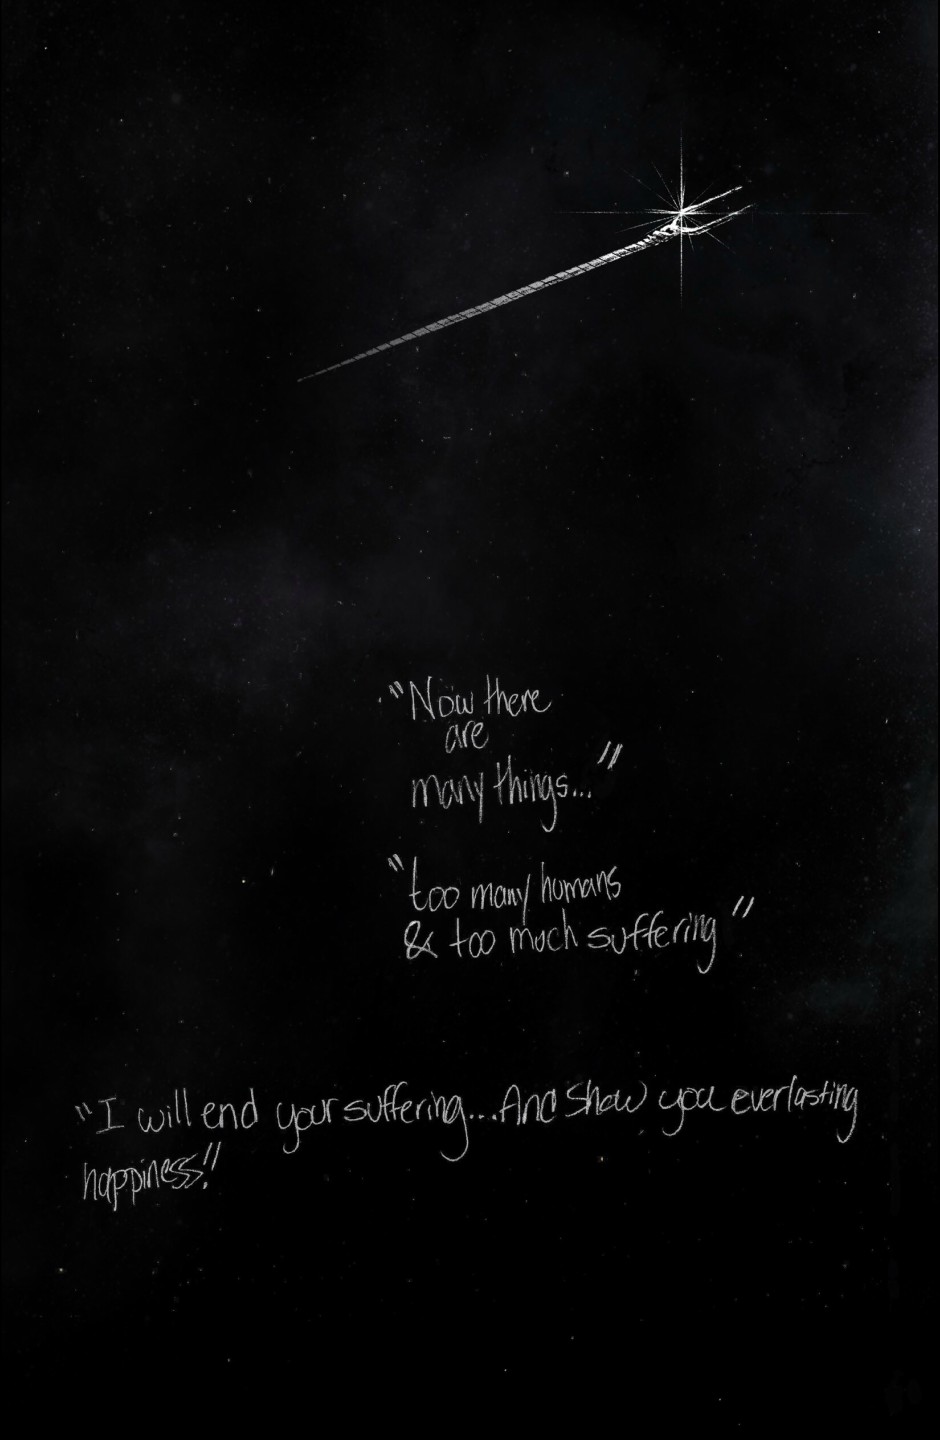 "Now there
are
many things..."
"too many humans
& too much suffering"
"I will end your suffering...And show you everlasting
happiness!"